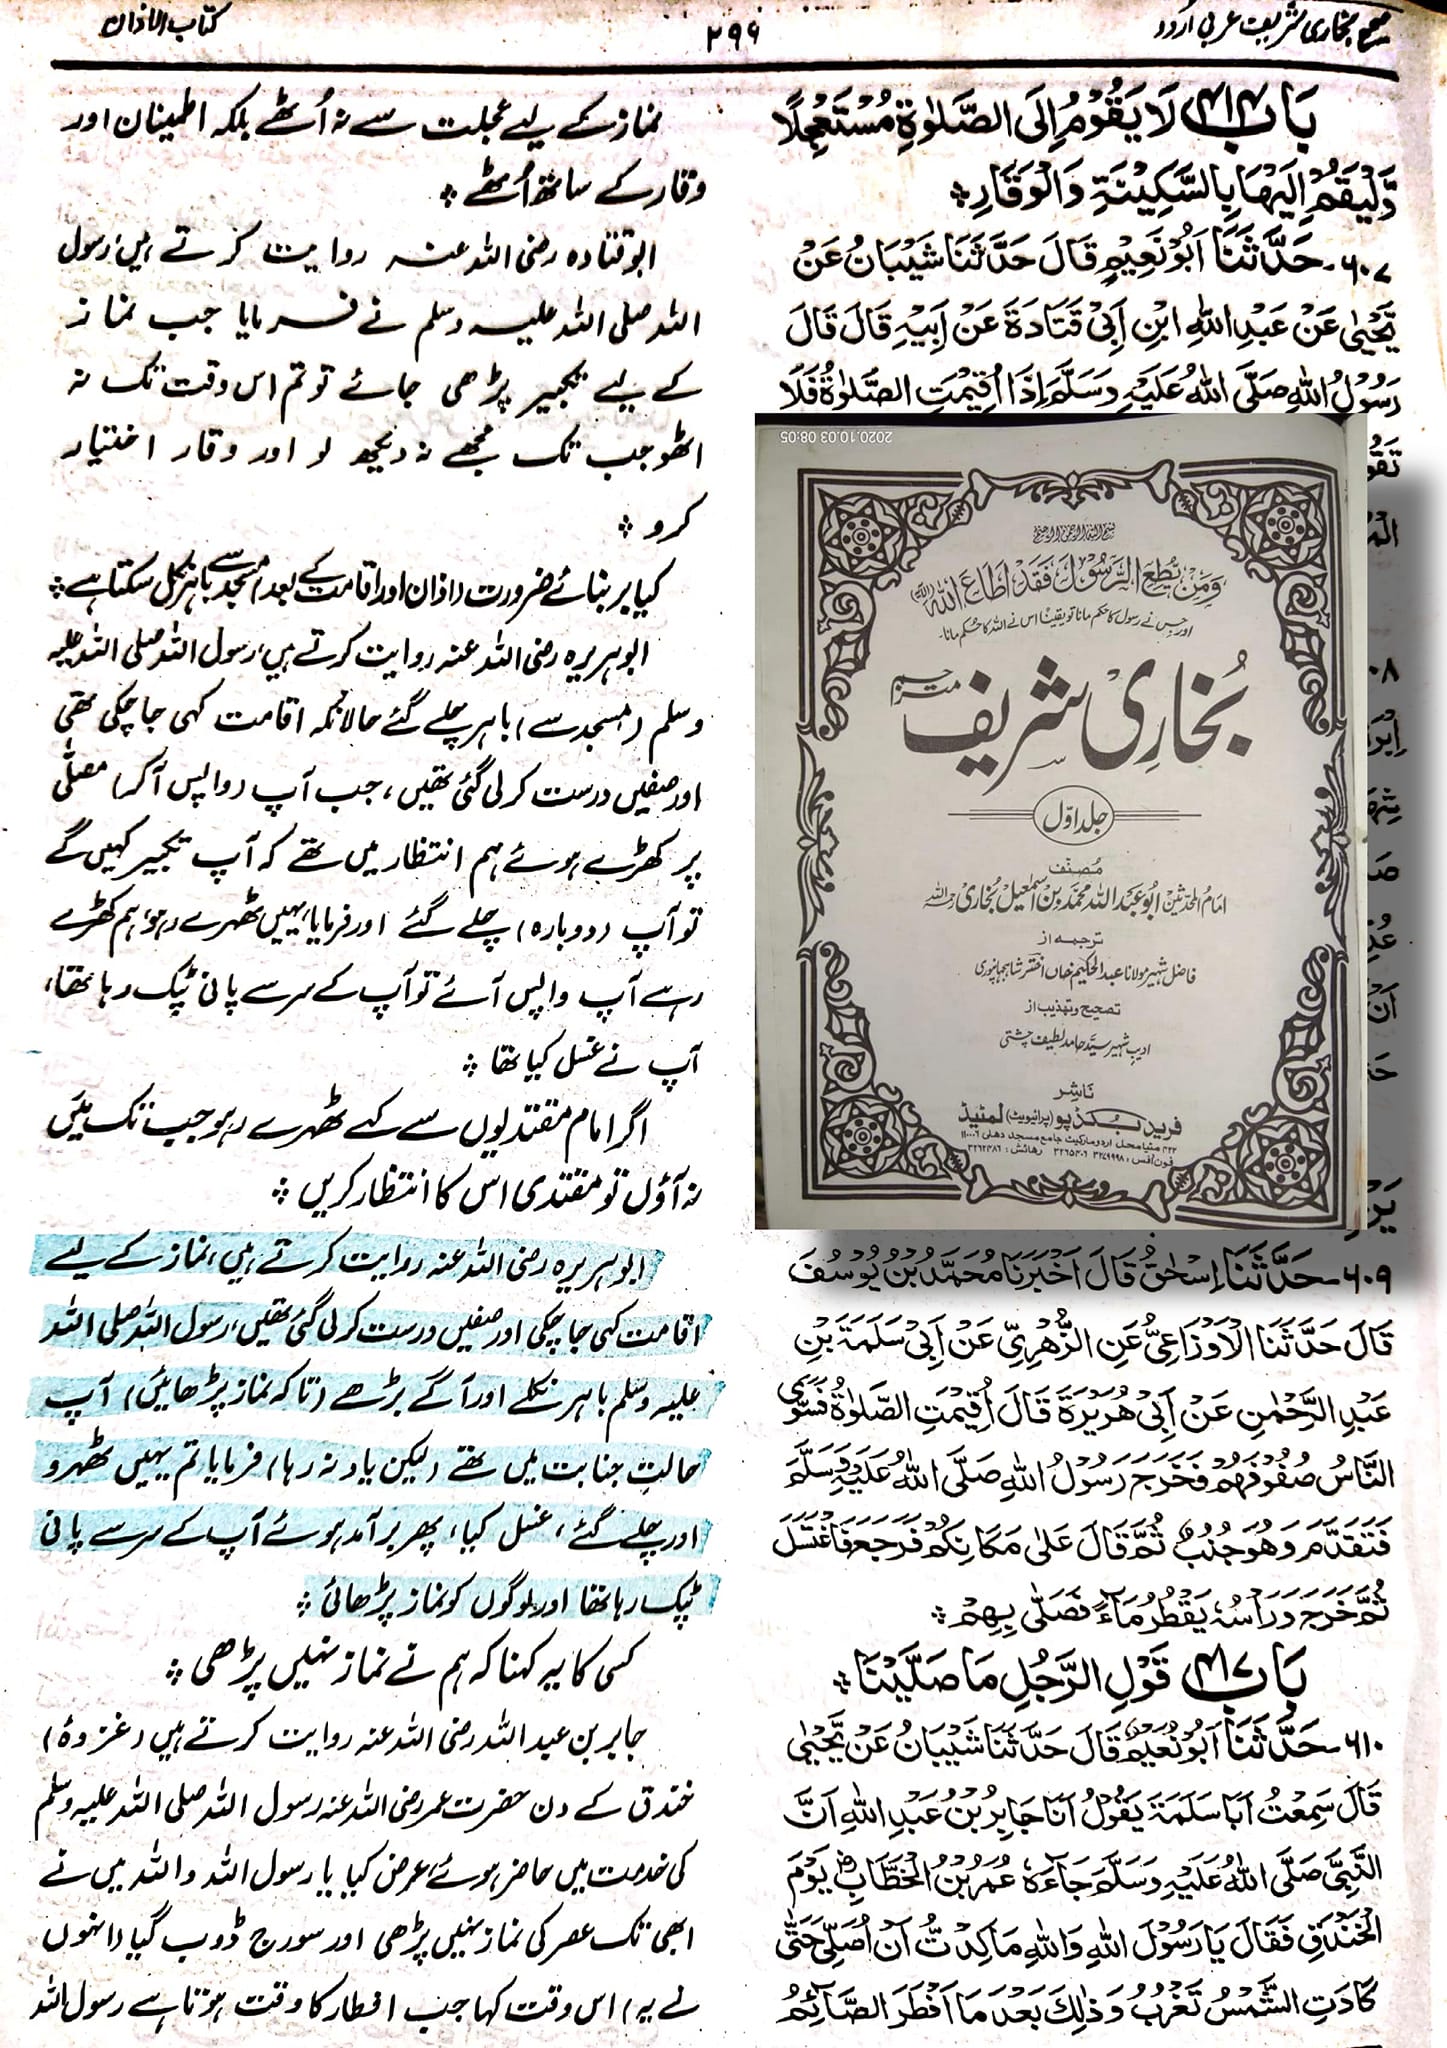 صحیح بخاری شریف عربی اردو
۲۹۹
کتاب الاذان
باب ۴۱۴ لَا يَقُوْمُ اِلَى الصَّلٰوةِ مُسْتَعْجِلًا
وَّلْيَقُمْ اِلَيْهَا بِالسَّكِيْنَةِ وَالْوَقَارِ
۶۰۷- حَدَّثَنَا اَبُوْ نَعِيْمٍ قَالَ حَدَّثَنَا شَيْبَانُ عَنْ
يَّحْيٰى عَنْ عَبْدِ اللهِ ابْنِ اَبِىْ قَتَادَةَ عَنْ اَبِيْهِ قَالَ قَالَ
رَسُوْلُ اللهِ صَلَّى اللهُ عَلَيْهِ وَسَلَّمَ اِذَا اُقِيْمَتِ الصَّلٰوةُ فَلَا
۶۰۹- حَدَّثَنَا اِسْحٰقُ قَالَ اَخْبَرَنَا مُحَمَّدُ بْنُ يُوْسُفَ
قَالَ حَدَّثَنَا الْاَوْزَاعِيُّ عَنِ الزُّهْرِيِّ عَنْ اَبِيْ سَلَمَةَ بْنِ
عَبْدِ الرَّحْمٰنِ عَنْ اَبِيْ هُرَيْرَةَ قَالَ اُقِيْمَتِ الصَّلٰوةُ فَسَوَّى
النَّاسُ صُفُوْفَهُمْ فَخَرَجَ رَسُوْلُ اللهِ صَلَّى اللهُ عَلَيْهِ وَسَلَّمَ
فَتَقَدَّمَ وَهُوَ جُنُبٌ ثُمَّ قَالَ عَلٰى مَكَانِكُمْ فَرَجَعَ فَاغْتَسَلَ
ثُمَّ خَرَجَ وَرَاْسُهٗ يَقْطُرُ مَاءً فَصَلّٰى بِهِمْ
باب ۴۱۷ قَوْلِ الرَّجُلِ مَا صَلَّيْنَا
۶۱۰- حَدَّثَنَا اَبُوْ نُعَيْمٍ قَالَ حَدَّثَنَا شَيْبَانُ عَنْ يَّحْيٰى
قَالَ سَمِعْتُ اَبَا سَلَمَةَ يَقُوْلُ اَنَا جَابِرُ بْنُ عَبْدِ اللهِ اَنَّ
النَّبِيَّ صَلَّى اللهُ عَلَيْهِ وَسَلَّمَ جَاءَهٗ عُمَرُ بْنُ الْخَطَّابِ يَوْمَ
الْخَنْدَقِ فَقَالَ يَا رَسُوْلَ اللهِ وَاللهِ مَا كِدْتُ اَنْ اُصَلِّيَ حَتّٰى
كَادَتِ الشَّمْسُ تَغْرُبُ وَذٰلِكَ بَعْدَ مَا اَفْطَرَ الصَّائِمُ
نماز کے لیے عجلت سے نہ اُٹھے بلکہ اطمینان اور
وقار کے ساتھ اُٹھے
ابو قتادہ رضی اللہ عنہ روایت کرتے ہیں، رسول
اللہ صلی اللہ علیہ وسلم نے فرمایا جب نماز
کے لیے تکبیر پڑھی جائے تو تم اس وقت تک نہ
اٹھو جب تک مجھے نہ دیکھ لو اور وقار اختیار
کرو
کیا بربنائے ضرورت (اذان اور اقامت کے بعد) مسجد سے باہر نکل سکتا ہے
ابوہریرہ رضی اللہ عنہ روایت کرتے ہیں، رسول اللہ صلی اللہ علیہ
وسلم (مسجد سے) باہر چلے گئے حالانکہ اقامت کہی جا چکی تھی
اور صفیں درست کر لی گئی تھیں، جب آپ (واپس آ کر) مصلّٰی
پر کھڑے ہوئے ہم انتظار میں تھے کہ آپ تکبیر کہیں گے
تو آپ (دوبارہ) چلے گئے اور فرمایا، یہیں ٹھہرے رہو، ہم کھڑے
رہے آپ واپس آئے تو آپ کے سر سے پانی ٹپک رہا تھا،
آپ نے غسل کیا تھا
اگر امام مقتدیوں سے کہے ٹھہرے رہو جب تک میں
نہ آؤں تو مقتدی اس کا انتظار کریں
ابوہریرہ رضی اللہ عنہ روایت کرتے ہیں، نماز کے لیے
اقامت کہی جا چکی اور صفیں درست کر لی گئی تھیں، رسول اللہ صلی اللہ
علیہ وسلم باہر نکلے اور آگے بڑھے (تاکہ نماز پڑھائیں) آپ
حالتِ جنابت میں تھے (لیکن یاد نہ رہا) فرمایا تم یہیں ٹھہرو
اور چلے گئے، غسل کیا، پھر برآمد ہوئے آپ کے سر سے پانی
ٹپک رہا تھا اور لوگوں کو نماز پڑھائی
کسی کا یہ کہنا کہ ہم نے نماز نہیں پڑھی
جابر بن عبداللہ رضی اللہ عنہ روایت کرتے ہیں (غزوۂ)
خندق کے دن حضرت عمر رضی اللہ عنہ رسول اللہ صلی اللہ علیہ وسلم
کی خدمت میں حاضر ہوئے، عرض کیا یا رسول اللہ واللہ میں نے
ابھی تک عصر کی نماز نہیں پڑھی اور سورج ڈوب گیا (انہوں
نے یہ) اس وقت کہا جب افطار کا وقت ہوتا ہے رسول اللہ
2020.10.03 08:05
بسم اللہ الرحمن الرحیم
وَمَنْ يُّطِعِ الرَّسُوْلَ فَقَدْ اَطَاعَ اللهَ
اور جس نے رسول کا حکم مانا تو یقیناً اس نے اللہ کا حکم مانا۔
بُخاری شریف مترجم
جلد اوّل
مُصنّف
امام المحدثین ابو عبداللہ محمد بن اسمٰعیل بُخاری رحمہ اللہ
ترجمہ از
فاضل شہیر مولانا عبدالحکیم خاں اختر شاہجہانپوری
تصحیح و تہذیب از
ادیب شہیر سیّد حامد لطیف چشتی
ناشر
فرید بکڈپو (پرائیویٹ) لمٹیڈ
۴۲۲ مٹیا محل اردو مارکیٹ جامع مسجد دہلی ۱۱۰۰۰۶